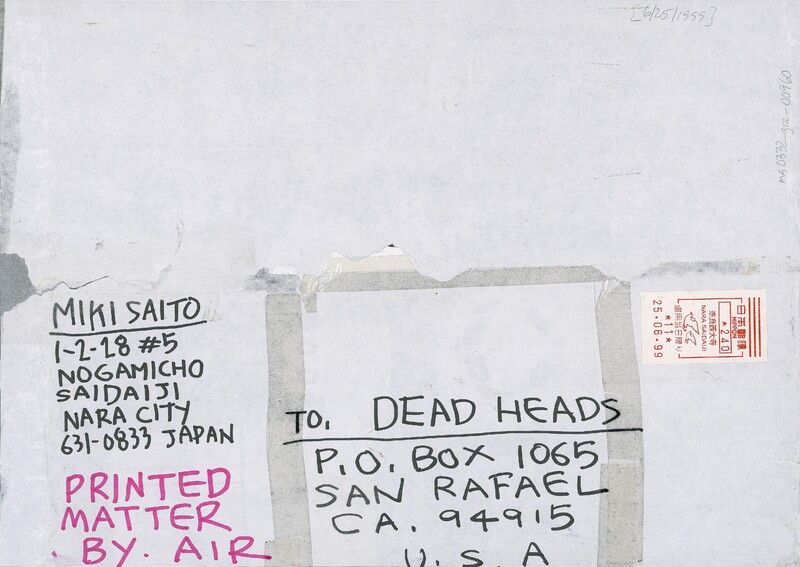 [6/25/1999]
ms0332-gre-00960
MIKI SAITO
1-2-28 #5
NOGAMICHO
SAIDAIJI
NARA CITY
631-0833 JAPAN
PRINTED
MATTER
. BY. AIR
TO. DEAD HEADS
P.O. BOX 1065
SAN RAFAEL
CA. 94915
U.S.A
日本郵便
NIPPON
*240
奈良西大寺
NARA SAIDAIJI
適用当日限り
*11*
25.06.99